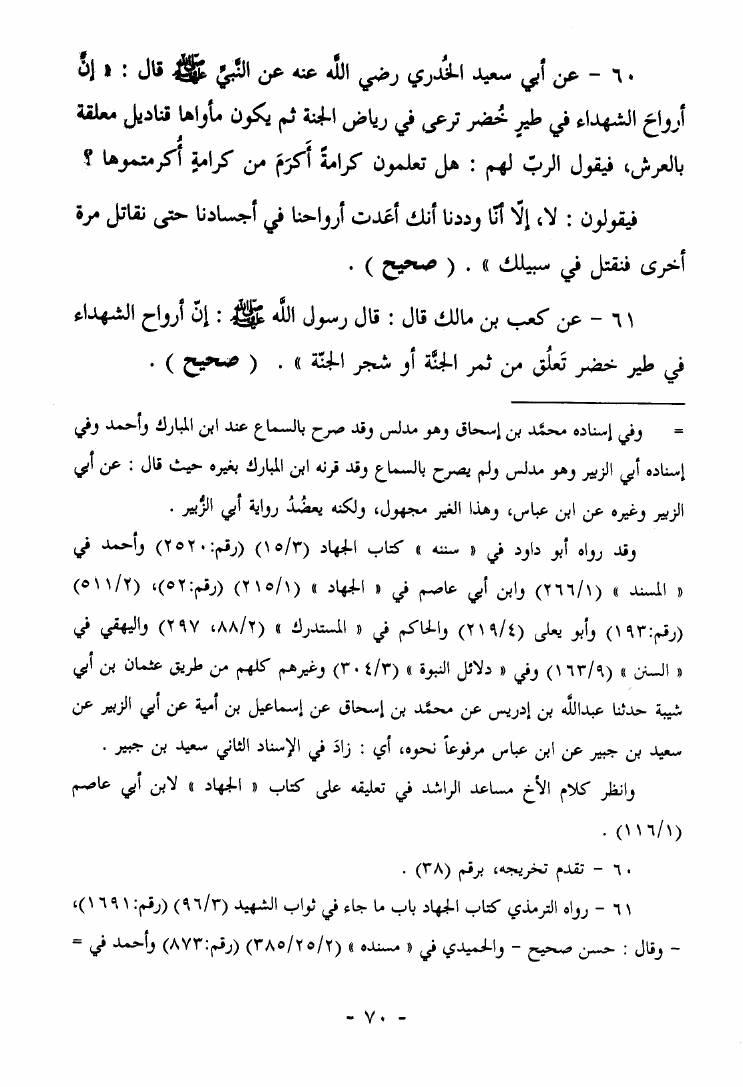 ٦٠ - عن أبي سعيد الخُدري رضي اللَّه عنه عن النَّبيِّ ﷺ قال : « إنَّ
أرواحَ الشهداء في طيرٍ خُضر ترعى في رياض الجنة ثم يكون مأواها قناديل معلقة
بالعرش، فيقول الربّ لهم : هل تعلمون كرامةً أَكرَمَ من كرامةٍ أُكرمتموها ؟
فيقولون : لا، إلّا أنّا وددنا أنك أعَدت أرواحنا في أجسادنا حتى نقاتل مرة
أخرى فنقتل في سبيلك » . ( صحيح ) .
٦١ - عن كعب بن مالك قال : قال رسول اللَّه ﷺ : إنّ أرواح الشهداء
في طير خضر تَعلُق من ثمر الجنَّة أو شجر الجنّة » . ( صحيح ) .
= وفي إسناده محمَّد بن إسحاق وهو مدلس وقد صرح بالسماع عند ابن المبارك وأحمد وفي
إسناده أبي الزبير وهو مدلس ولم يصرح بالسماع وقد قرنه ابن المبارك بغيره حيث قال : عن أبي
الزبير وغيره عن ابن عباس، وهذا الغير مجهول، ولكنه يعضُدُ رواية أبي الزُّبير .
وقد رواه أبو داود في « سننه » كتاب الجهاد (١٥/٣) (رقم:٢٥٢٠) وأحمد في
« المسند » (٢٦٦/١) وابن أبي عاصم في « الجهاد » (٢١٥/١) (رقم:٥٢)، (٥١١/٢)
(رقم:١٩٣) وأبو يعلى (٢١٩/٤) والحاكم في « المستدرك » (٨٨/٢، ٢٩٧) والبيهقي في
« السنن » (١٦٣/٩) وفي « دلائل النبوة » (٣٠٤/٣) وغيرهم كلهم من طريق عثمان بن أبي
شيبة حدثنا عبداللَّه بن إدريس عن محمَّد بن إسحاق عن إسماعيل بن أمية عن أبي الزبير عن
سعيد بن جبير عن ابن عباس مرفوعاً نحوه، أي : زادَ في الإسناد الثاني سعيد بن جبير .
وانظر كلام الأخ مساعد الراشد في تعليقه على كتاب « الجهاد » لابن أبي عاصم
(١١٦/١) .
٦٠ - تقدم تخريجه، برقم (٣٨) .
٦١ - رواه الترمذي كتاب الجهاد باب ما جاء في ثواب الشهيد (٩٦/٣) (رقم:١٦٩١)،
- وقال : حسن صحيح - والحميدي في « مسنده » (٣٨٥/٢٥/٢) (رقم:٨٧٣) وأحمد في =
- ٧٠ -